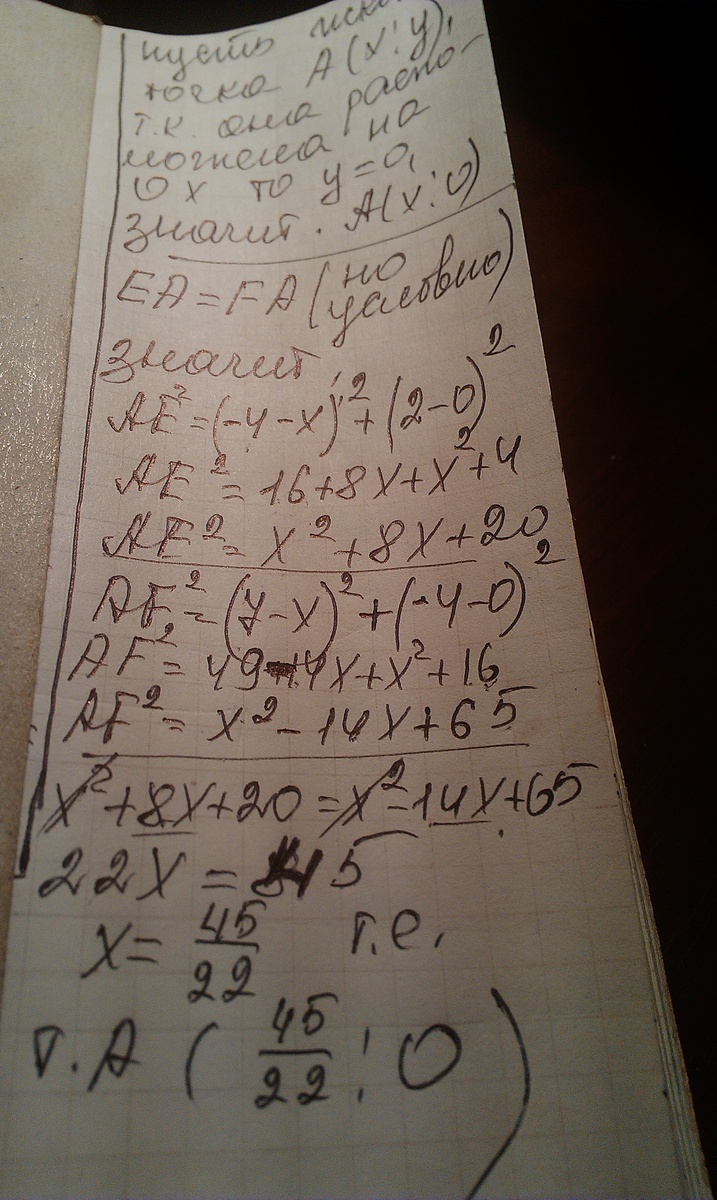 пусть
точка A(x;y),
т.к. она распо-
ложена на
Ox то y=0,
значит. A(x;0)
EA=FA(по
условию)
значит,
AE²=(-4-x)²+(2-0)²
AE²=16+8x+x²+4
AE²=x²+8x+20
AF²=(7-x)²+(-4-0)²
AF²=49-14x+x²+16
AF²=x²-14x+65
x²+8x+20=x²-14x+65
22x=45
x=45/22 т.е.
т.A (45/22;0)